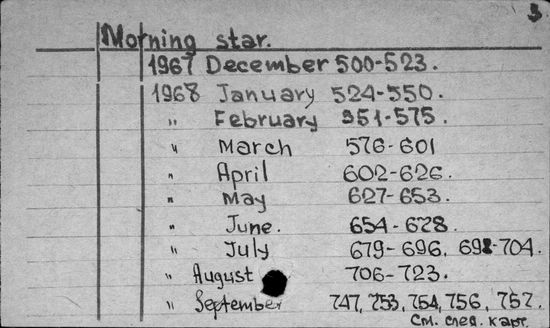 3
Morning star.
1967 December 500-523.
1968 January 524-550.
" February 951-575.
" March 576-601
" April 602-626.
" May 627-653.
" June. 654-628.
" July 679-696, 698-704.
" August 706-723.
" September 747, 753, 754, 756, 757.
См. след. карт.